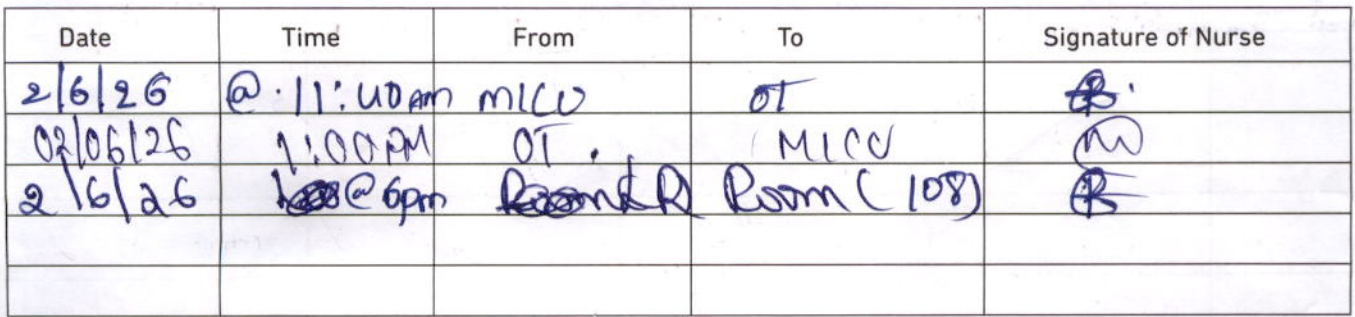 Date Time From To Signature of Nurse
2/6/26 @ 11:40 AM MICU OT
02/06/26 1:00 PM OT. MICU
2/6/26 @ 6pm Room (108)